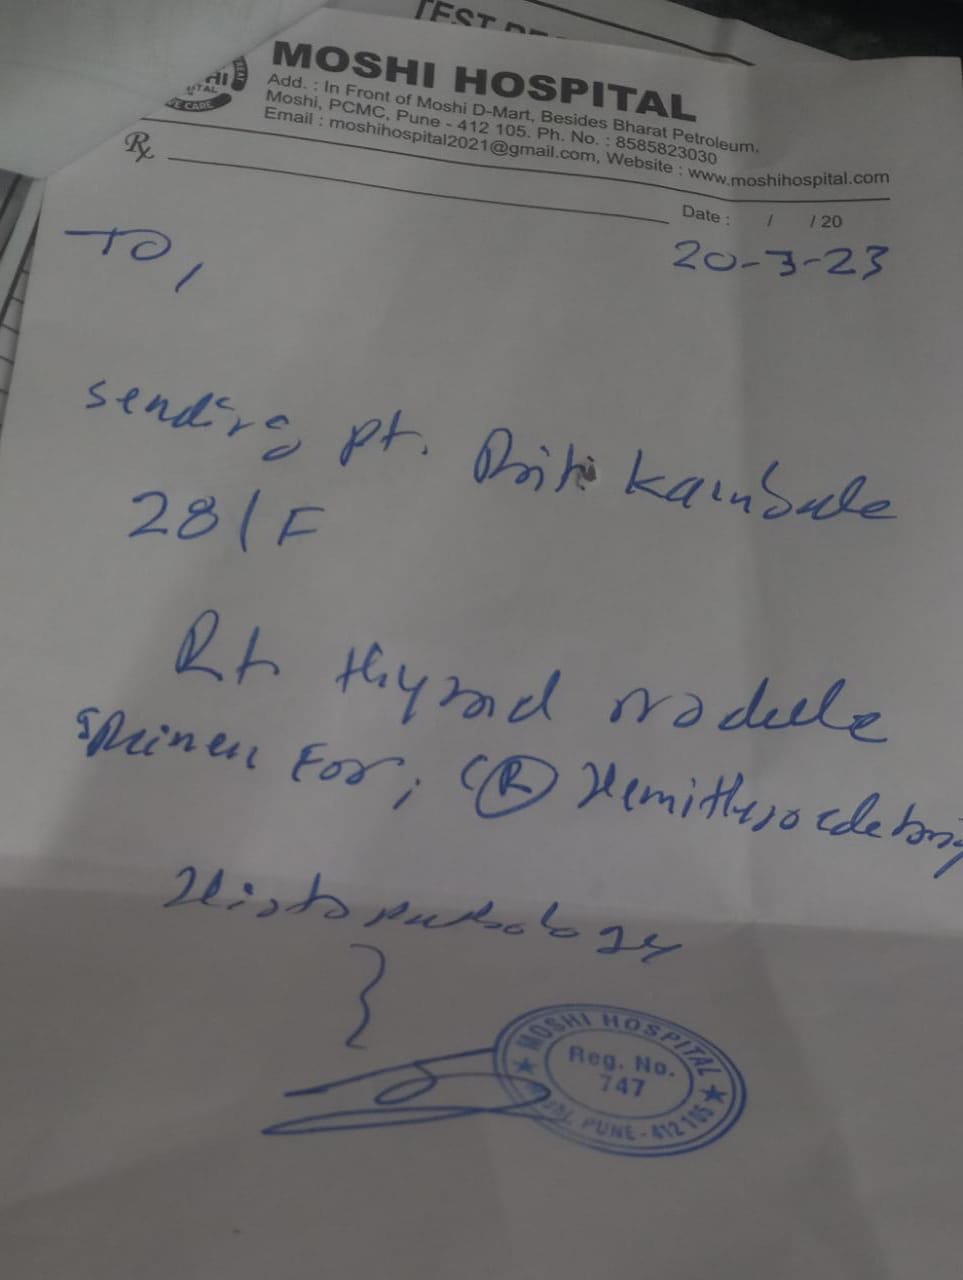 TEST
MOSHI HOSPITAL
Add. : In Front of Moshi D-Mart, Besides Bharat Petroleum,
Moshi, PCMC, Pune - 412 105. Ph. No. : 8585823030
Email : moshihospital2021@gmail.com, Website : www.moshihospital.com
HI
ITAL
VE CARE
Rx
Date : / / 20
20-3-23
TO,
sending pt. Priti Kambale
28/F
Rt thyroid nodule
For, (R)
Histopathology
MOSHI HOSPITAL
Reg. No.
747
PUNE - 412 105